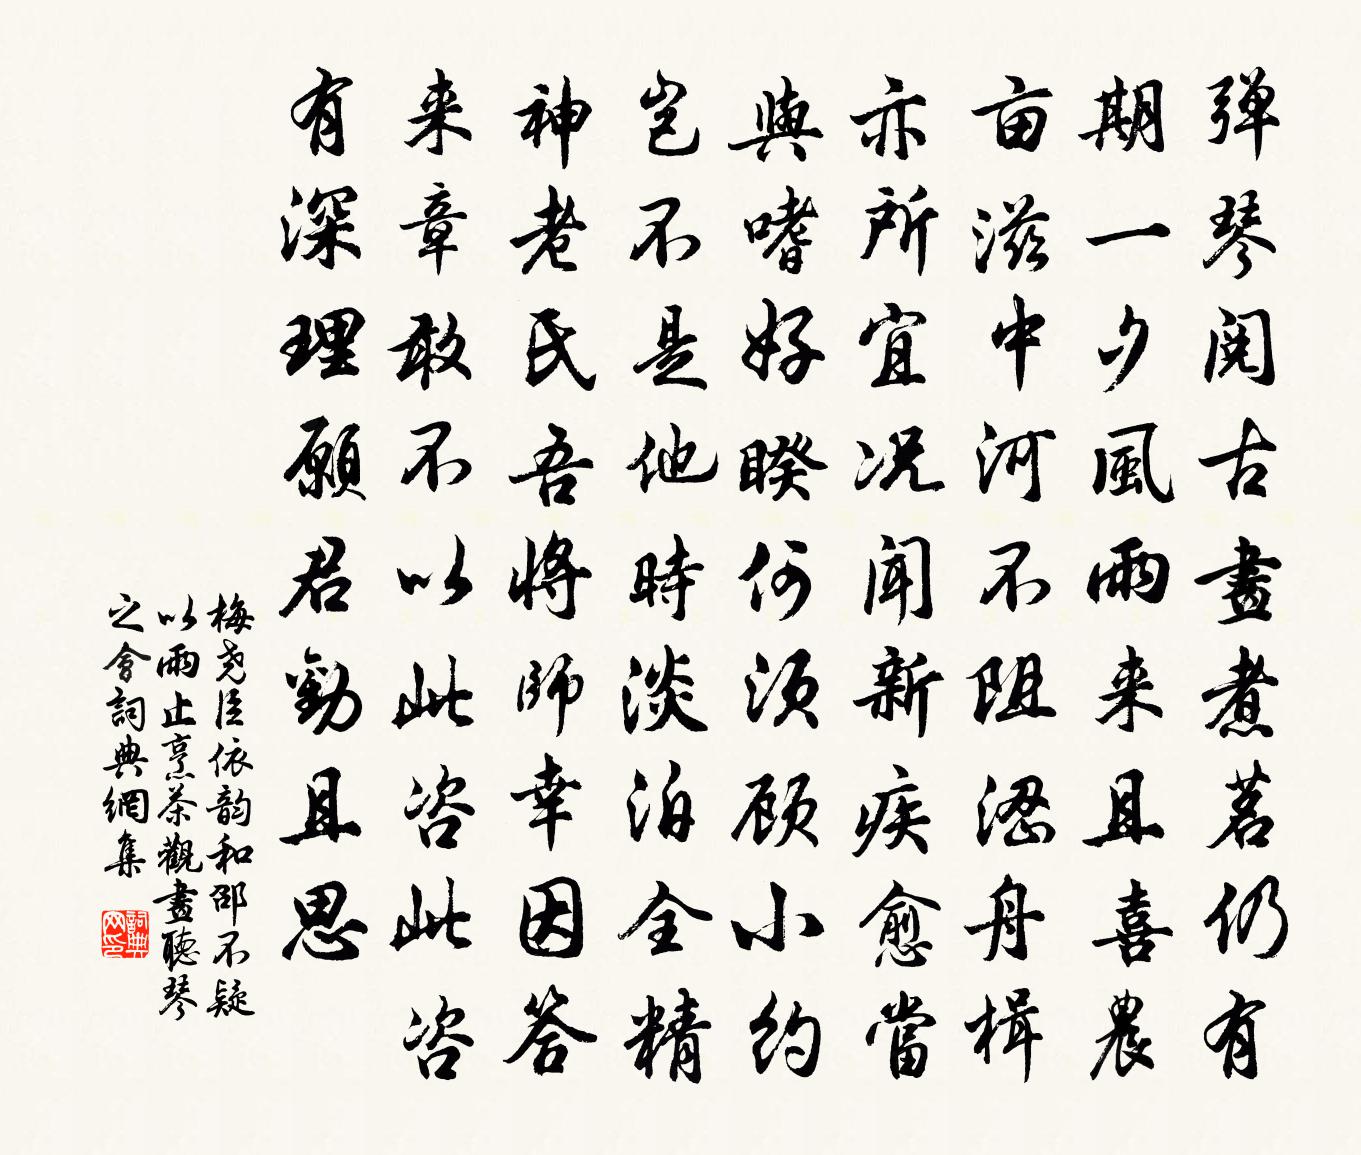 弹琴閱古畫煮茗仍有
期一夕風雨来且喜農
亩滋中河不阻澀舟楫
亦所宜况闻新疾愈當
與嗜好睽何须顾小约
岂不是他時淡泊全精
神老氏吾将師幸因答
来章敢不以此咨此咨
有深理願君勤且思
梅堯臣依韵和邵不疑
以雨止烹茶觀畫聽琴
之會詞典網集
詞典网印